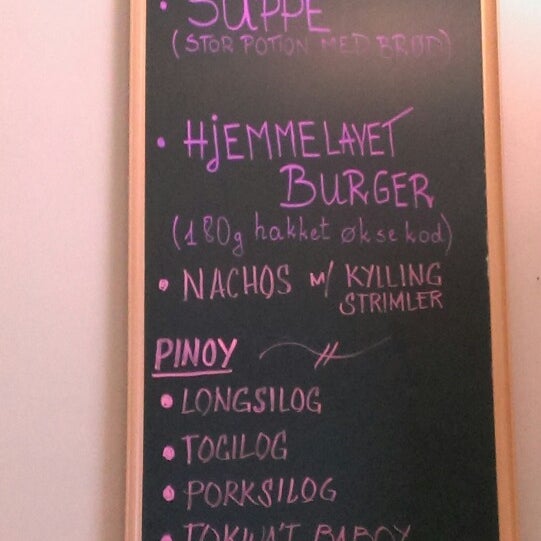 • SUPPE
(STOR POTION MED BRØD)
• HJEMMELAVET
BURGER
(180g hakket økse kod)
• NACHOS m/ KYLLING
STRIMLER
PINOY
• LONGSILOG
• TOCILOG
• PORKSILOG
• TOKWA'T BABOY